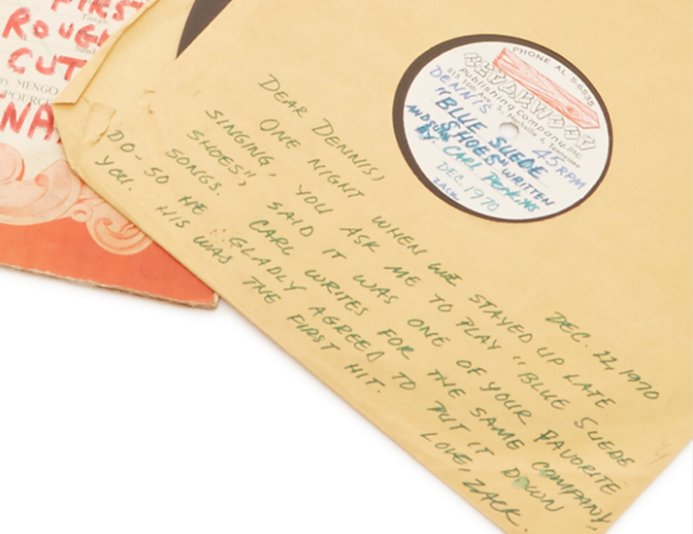 FIRS
ROUGH
CUT
MENGO
POURCE
NA
PHONE AL
CEDARWOOD
Publishing Company, Inc.
Ave. S., Nashville Tennessee
DENNIS
45 RPM
"BLUE SUEDE
SHOES" WRITTEN
AND
BY CARL PERKINS
DEC 1970
ZACK
DEC. 22, 1970
DEAR DENNIS,
ONE NIGHT WHEN WE STAYED UP LATE
SINGING, YOU ASK ME TO PLAY "BLUE SUEDE
SHOES", SAID IT WAS ONE OF YOUR FAVORITE
SONGS. CARL WRITES FOR THE SAME COMPANY I
DO - SO HE GLADLY AGREED TO PUT IT DOWN
YOU. HIS WAS THE FIRST HIT.
LOVE, ZACK.